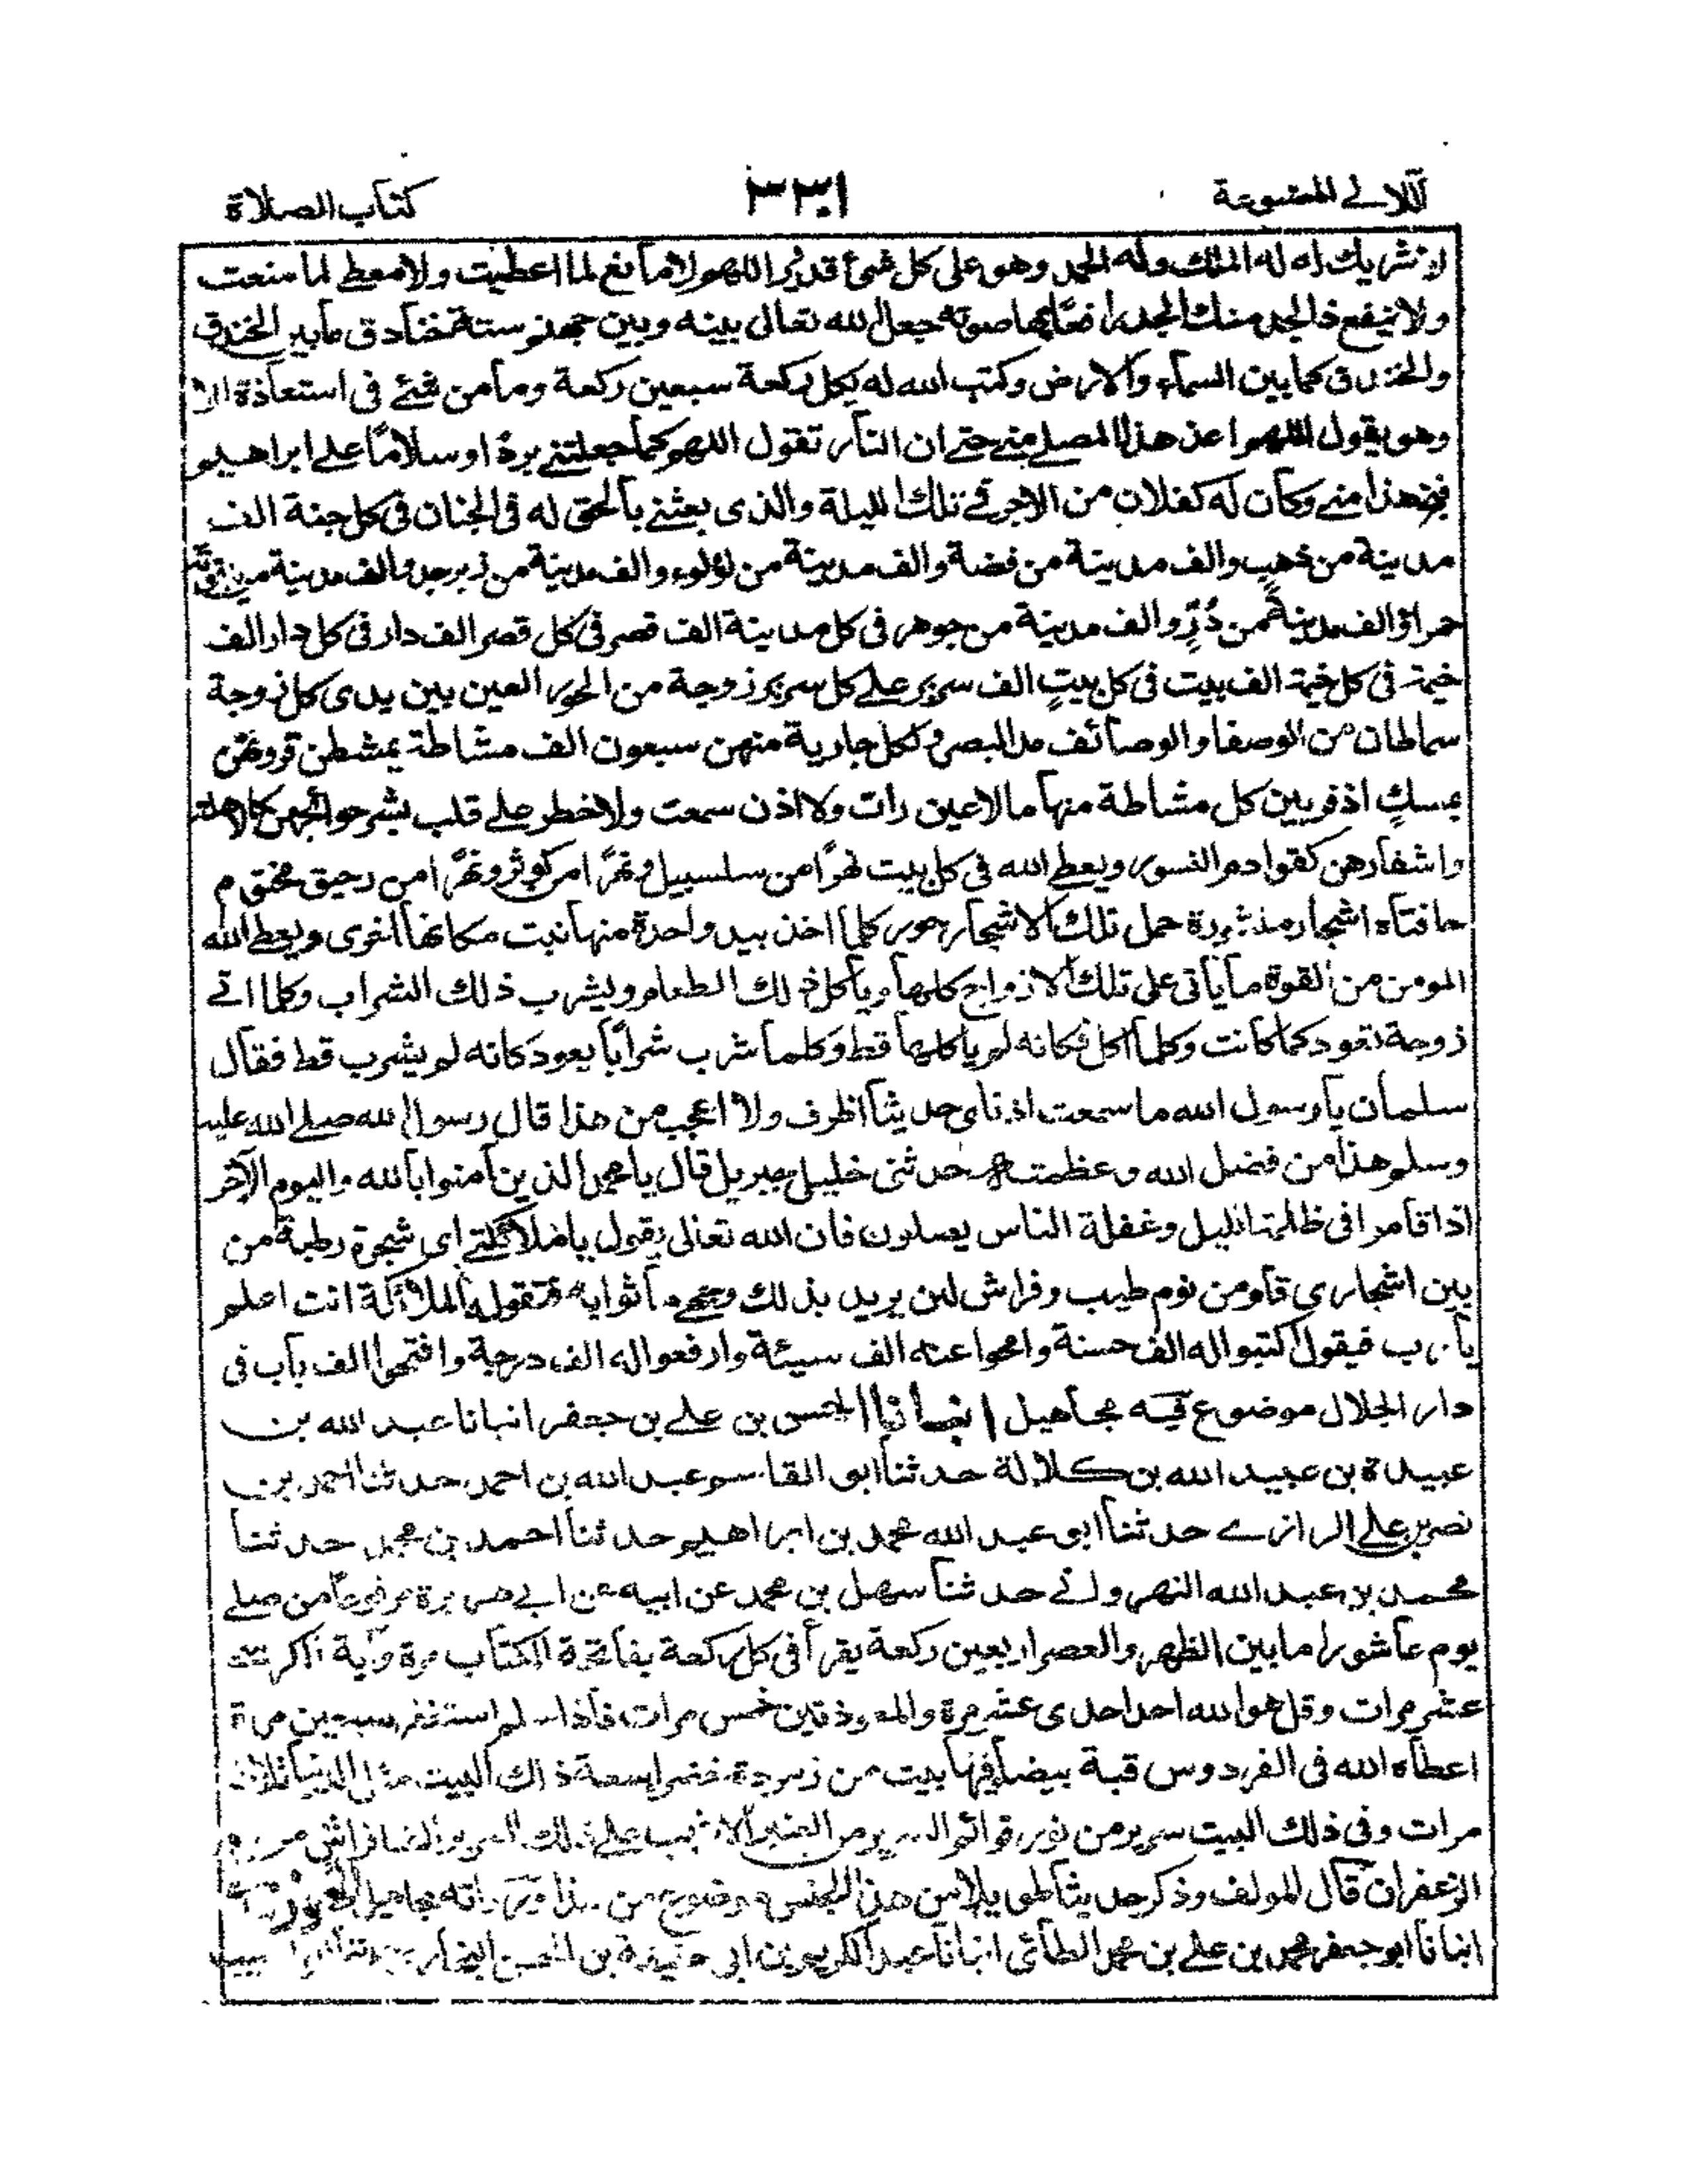 اللآلى المصنوعة
٣٣١
كتاب الصلاة
لا شريك له له الملك وله الحمد وهو على كل شئ قدير اللهم لا مانع لما اعطيت ولا معطى لما منعت
ولا ينفع ذا الجد منك الجد رافعا بها صوته جعل الله تعالى بينه وبين جهنم ستة خنادق ما بين الخندق
والخندق كما بين السماء والارض وكتب الله له بكل ركعة سبعين ركعة وما من شئ فى استعاذة الا
وهو يقول اللهم اعذ هذا المصلى منى حتى ان النار تقول اللهم كما جعلتنى بردا وسلاما على ابراهيم
فنج هذا منى وكان له كفلان من الاجر فى تلك الليلة والذى بعثنى بالحق له فى الجنان فى كل جنة الف
مدينة من ذهب والف مدينة من فضة والف مدينة من لؤلوء والف مدينة من زبرجد والف مدينة من ياقوتة
حمراؤ الف مدينة من دُرٍّ والف مدينة من جوهر فى كل مدينة الف قصر فى كل قصر الف دار فى كل دار الف
خيمة فى كل خيمة الف بيت فى كل بيتٍ الف سرير على كل سرير زوجة من الحور العين بين يدى كل زوجة
سماطان من الوصفا والوصائف مد البصر ولكل جارية منهن سبعون الف مشاطة يمشطن قرونهن
بمسكٍ اذفر بين كل مشاطة منها ما لا عين رات ولا اذن سمعت ولا خطر على قلب بشر حواجبهن كالاهلة
واشفارهن كقوادم النسور ويعطى الله فى كل بيت نهرًا من سلسبيل ونهرًا من كوثر ونهرًا من رحيق مختوم
حافتاه اشجار منثورة حمل تلك الاشجار حور كلما اخذ بيد واحدة منها نبت مكانها اخرى ويعطى الله
المومن من القوة ما ياتى على تلك الازواج كلها وياكل ذلك الطعام ويشرب ذلك الشراب وكلما اتى
زوجة تعود كما كانت وكلما اكل فكانه لم ياكلها قط وكلما شرب شرابًا يعود كانه لم يشرب قط فقال
سلمان يا رسول الله ما سمعت اذناى حديثا اظرف ولا اعجب من هذا قال رسول الله صلى الله عليه
وسلم هذا من فضل الله وعظمته حدثنى خليلى جبريل قال يا محمد الذين آمنوا بالله واليوم الآخر
اذا قاموا فى ظلمة الليل وغفلة الناس يصلون فان الله تعالى يقول يا ملائكتى اى شجرة رطبة من
بين اشجارى قاو من نوم طيب وفراش لين يريد بذلك وجهى ما ثوابه فتقول الملائكة انت اعلم
يا رب فيقول اكتبوا له الف حسنة وامحوا عنه الف سيئة وارفعوا له الف درجة وافتحوا الف باب فى
دار الجلال موضوع فيه مجاهيل انبانا الحسن بن على بن جعفر انبانا عبد الله بن
عبيدة بن عبيد الله بن كلالة حدثنا ابو القاسم عبد الله بن احمد حدثنا احمد بن
نصر بن على الرازى حدثنا ابو عبد الله محمد بن ابراهيم حدثنا احمد بن محمد حدثنا
محمد بن عبد الله النهروانى حدثنا سهل بن محمد عن ابيه عن ابى هريرة مرفوعا من صلى
يوم عاشورا ما بين الظهر والعصر اربعين ركعة يقرأ فى كل ركعة بفاتحة الكتاب مرة وآية الكرسى
عشر مرات وقل هو الله احد احدى عشر مرة والمعوذتين خمس مرات فاذا سلم استغفر سبعين مرة
اعطاه الله فى الفردوس قبة بيضا فيها بيت من زمردة خضرا سعة ذلك البيت مثل الدنيا ثلاث
مرات وفى ذلك البيت سرير من نور قوائم السرير من العنبر الاشهب على ذلك السرير الفا فراش من
الزعفران قال المولف وذكر حديثا طويلا من هذا الجنس موضوع من رواته مجاهيل
انبانا ابو جعفر محمد بن على بن محمد الطائى انبانا عبد الكريم بن ابى حنيفة بن الحسن البخارى